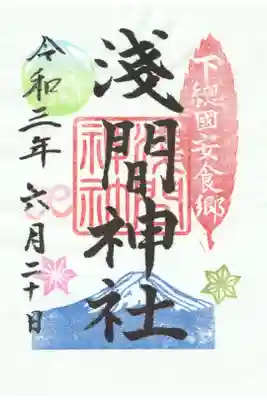 下總國安食郷
淺間神社
淺間神社
令和三年六月二十日